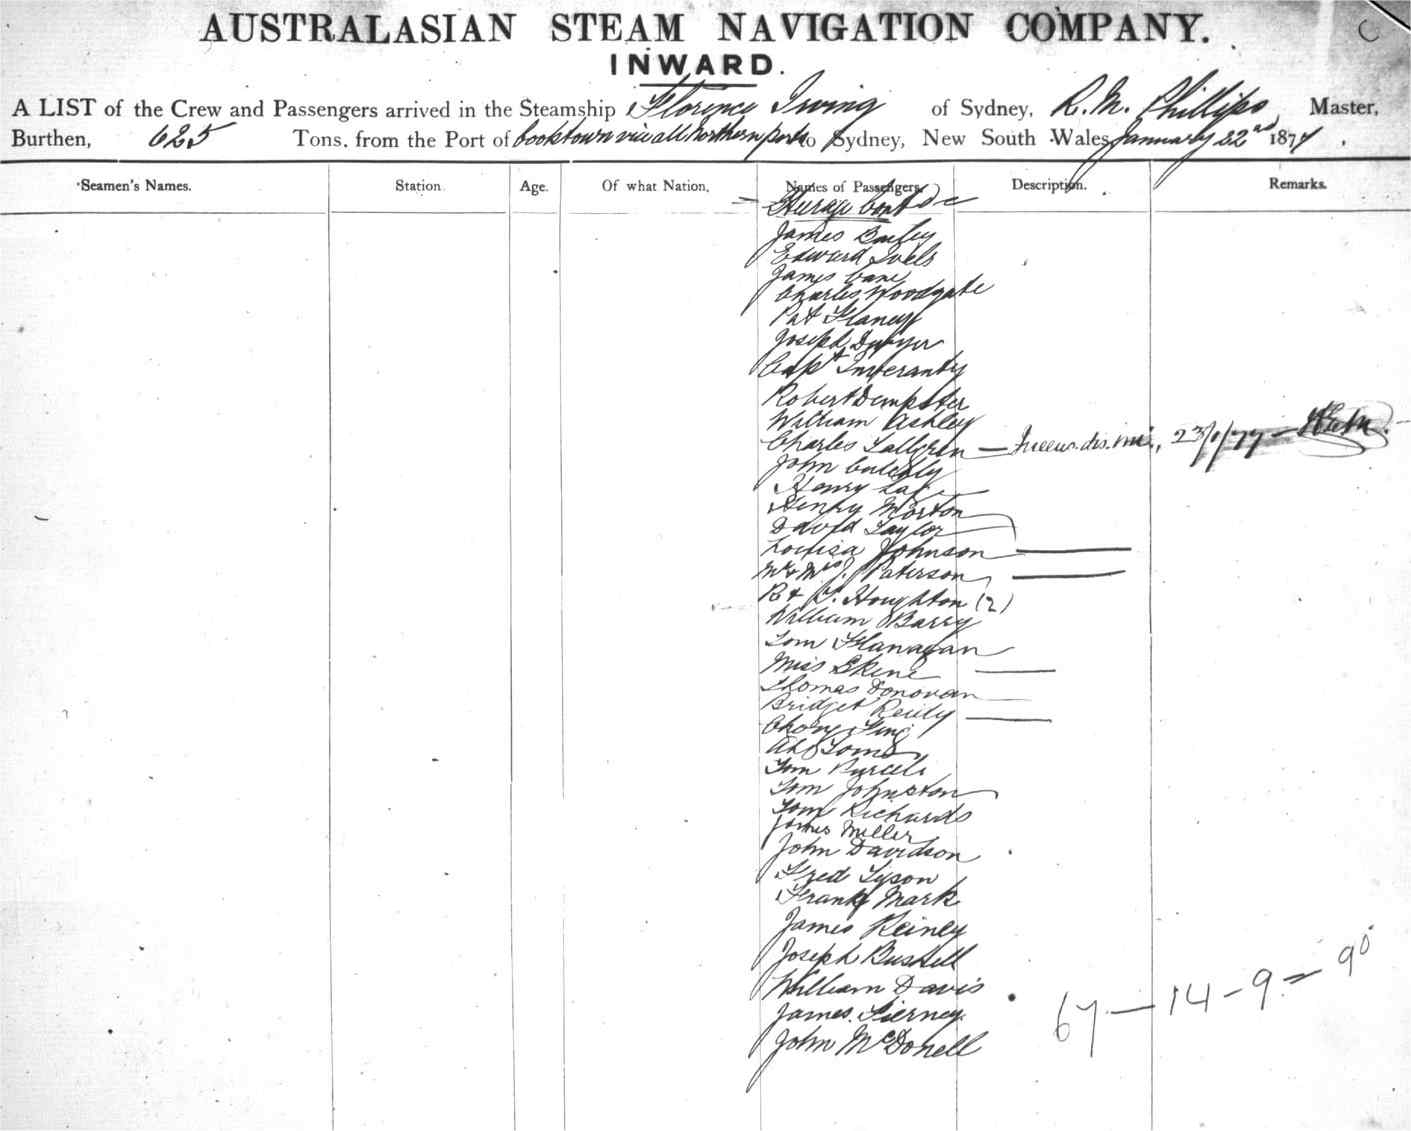 C
AUSTRALASIAN STEAM NAVIGATION COMPANY.
INWARD.
A LIST of the Crew and Passengers arrived in the Steamship Florence Irving of Sydney, R. M. Phillips, Master,
Burthen, 625 Tons, from the Port of Cooktown via all Northern ports to Sydney, New South Wales, January 22nd 1877.
Seamen's Names. Station. Age. Of what Nation. Names of Passengers. Description. Remarks.
Steerage Cont
James Bailey
Edward
James Cane
Charles Woodgate
Pat Clancy
Joseph Dwyer
Capt
Robert Dempster
William Ashley
Charles Lallgren — 23/1/77
John
Henry
Henry Morton
David Taylor
Louisa Johnson
Mr & Mrs J. Paterson
R & T. Houghton (2)
William Barry
Tom Flanagan
Miss Skene
Thomas Donovan
Bridget Reily
Chong
Ah
Tom Purcell
Tom Johnston
Tom Richards
James Miller
John Davidson
Fred Tyson
Frank Mark
James Keiney
Joseph Bussell
William Davis
James Tierney
John McDonell
67 — 14 - 9 = 90